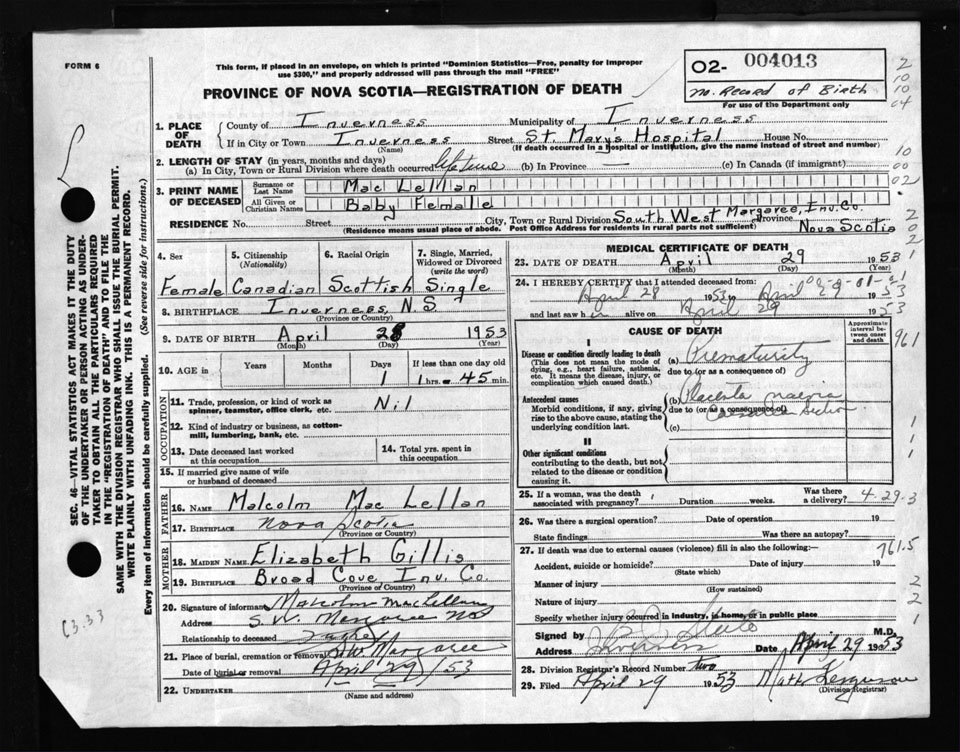 FORM 6
This form, if placed in an envelope, on which is printed "Dominion Statistics—Free, penalty for improper
use $300," and properly addressed will pass through the mail "FREE"
PROVINCE OF NOVA SCOTIA—REGISTRATION OF DEATH
02- 004013
No. Record of Birth
For use of the Department only
1. PLACE OF DEATH
County of Inverness Municipality of Inverness
If in City or Town Inverness Street St. Mary's Hospital House No.
(Name) (If death occurred in a hospital or institution, give the name instead of street and number)
2. LENGTH OF STAY (in years, months and days)
(a) In City, Town or Rural Division where death occurred lifetime (b) In Province — (c) In Canada (if immigrant)
3. PRINT NAME OF DECEASED
Surname or Last Name Mac Lellan
All Given or Christian Names Baby Female
RESIDENCE No. Street City, Town or Rural Division South West Margaree, Inv. Co. Province Nova Scotia
(Residence means usual place of abode. Post Office Address for residents in rural parts not sufficient)
4. Sex Female
5. Citizenship (Nationality) Canadian
6. Racial Origin Scottish
7. Single, Married, Widowed or Divorced (write the word) Single
8. BIRTHPLACE Inverness, N.S.
(Province or Country)
9. DATE OF BIRTH April 28 1953
(Month) (Day) (Year)
10. AGE in Years Months Days 1 If less than one day old 1 hrs. 45 min.
OCCUPATION
11. Trade, profession, or kind of work as spinner, teamster, office clerk, etc. Nil
12. Kind of industry or business, as cotton-mill, lumbering, bank, etc.
13. Date deceased last worked at this occupation
14. Total yrs. spent in this occupation
15. If married give name of wife or husband of deceased
FATHER
16. NAME Malcolm Mac Lellan
17. BIRTHPLACE Nova Scotia
(Province or Country)
MOTHER
18. MAIDEN NAME Elizabeth Gillis
19. BIRTHPLACE Broad Cove, Inv. Co.
(Province of Country)
20. Signature of informant Malcolm MacLellan
Address S. W. Margaree NS
Relationship to deceased Father
21. Place of burial, cremation or removal S. W. Margaree
Date of burial or removal April 29/53
22. UNDERTAKER
(Name and address)
MEDICAL CERTIFICATE OF DEATH
23. DATE OF DEATH April 29 1953
(Month) (Day) (Year)
24. I HEREBY CERTIFY that I attended deceased from:
April 28 1953 to April 29 1953
and last saw h alive on April 29 1953
CAUSE OF DEATH
Approximate interval between onset and death
I
Disease or condition directly leading to death
(This does not mean the mode of dying, e.g., heart failure, asthenia, etc. It means the disease, injury, or complication which caused death.)
(a) Prematurity
due to (or as a consequence of)
Antecedent causes
Morbid conditions, if any, giving rise to the above cause, stating the underlying condition last.
(b) Placenta Praevia
due to (or as a consequence of)
Caesarean Section
(c)
II
Other significant conditions
contributing to the death, but not related to the disease or condition causing it.
25. If a woman, was the death associated with pregnancy? Duration weeks. Was there a delivery?
4-29-3
26. Was there a surgical operation? Date of operation 19
State findings Was there an autopsy?
27. If death was due to external causes (violence) fill in also the following:—
761.5
Accident, suicide or homicide? Date of injury 19
(State which)
Manner of injury
(How sustained)
Nature of injury
Specify whether injury occurred in industry, in home, or in public place
Signed by M.D.
Address Inverness Date April 29 1953
28. Division Registrar's Record Number two
29. Filed April 29 1953 Math Ferguson
(Division Registrar)
SEC. 46—VITAL STATISTICS ACT MAKES IT THE DUTY
OF THE UNDERTAKER OR PERSON ACTING AS UNDER-
TAKER TO OBTAIN ALL THE PARTICULARS REQUIRED
IN THE "REGISTRATION OF DEATH" AND TO FILE THE
SAME WITH THE DIVISION REGISTRAR WHO SHALL ISSUE THE BURIAL PERMIT.
WRITE PLAINLY WITH UNFADING INK. THIS IS A PERMANENT RECORD.
Every item of information should be carefully supplied. (See reverse side for instructions.)